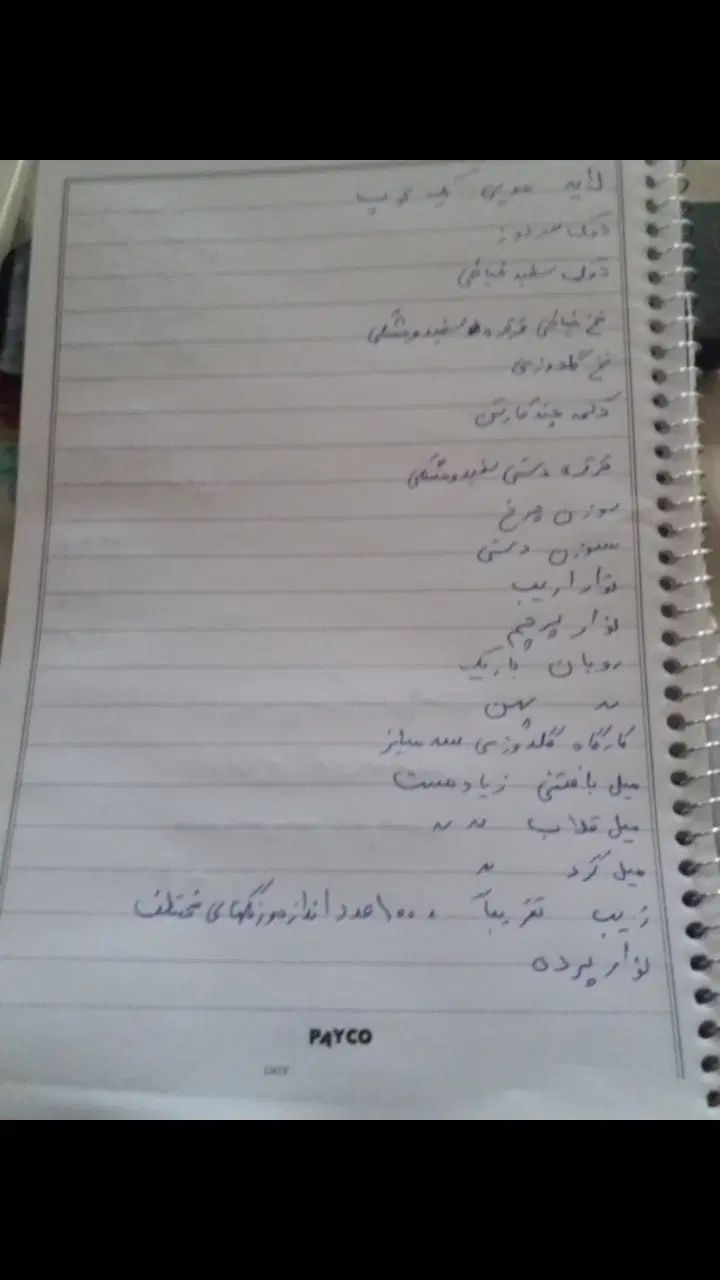 لایه مویی یک توپ
دوک سردوز
دوک سفید خیاطی
نخ خیاطی قرقره سفید و مشکی
نخ گلدوزی
دکمه چند کارتن
قرقره دستی سفید و مشکی
سوزن چرخ
سوزن دستی
نوار اریب
نوار پرچم
روبان باریک
〃 پهن
کارگاه گلدوزی سه سایز
میل بافتنی زیاد هست
میل قلاب 〃 〃
میل گرد 〃
زیپ تقریباً ۱۰۰۰ عدد اندازه و رنگهای مختلف
نوار پرده
PAYCO
DATE